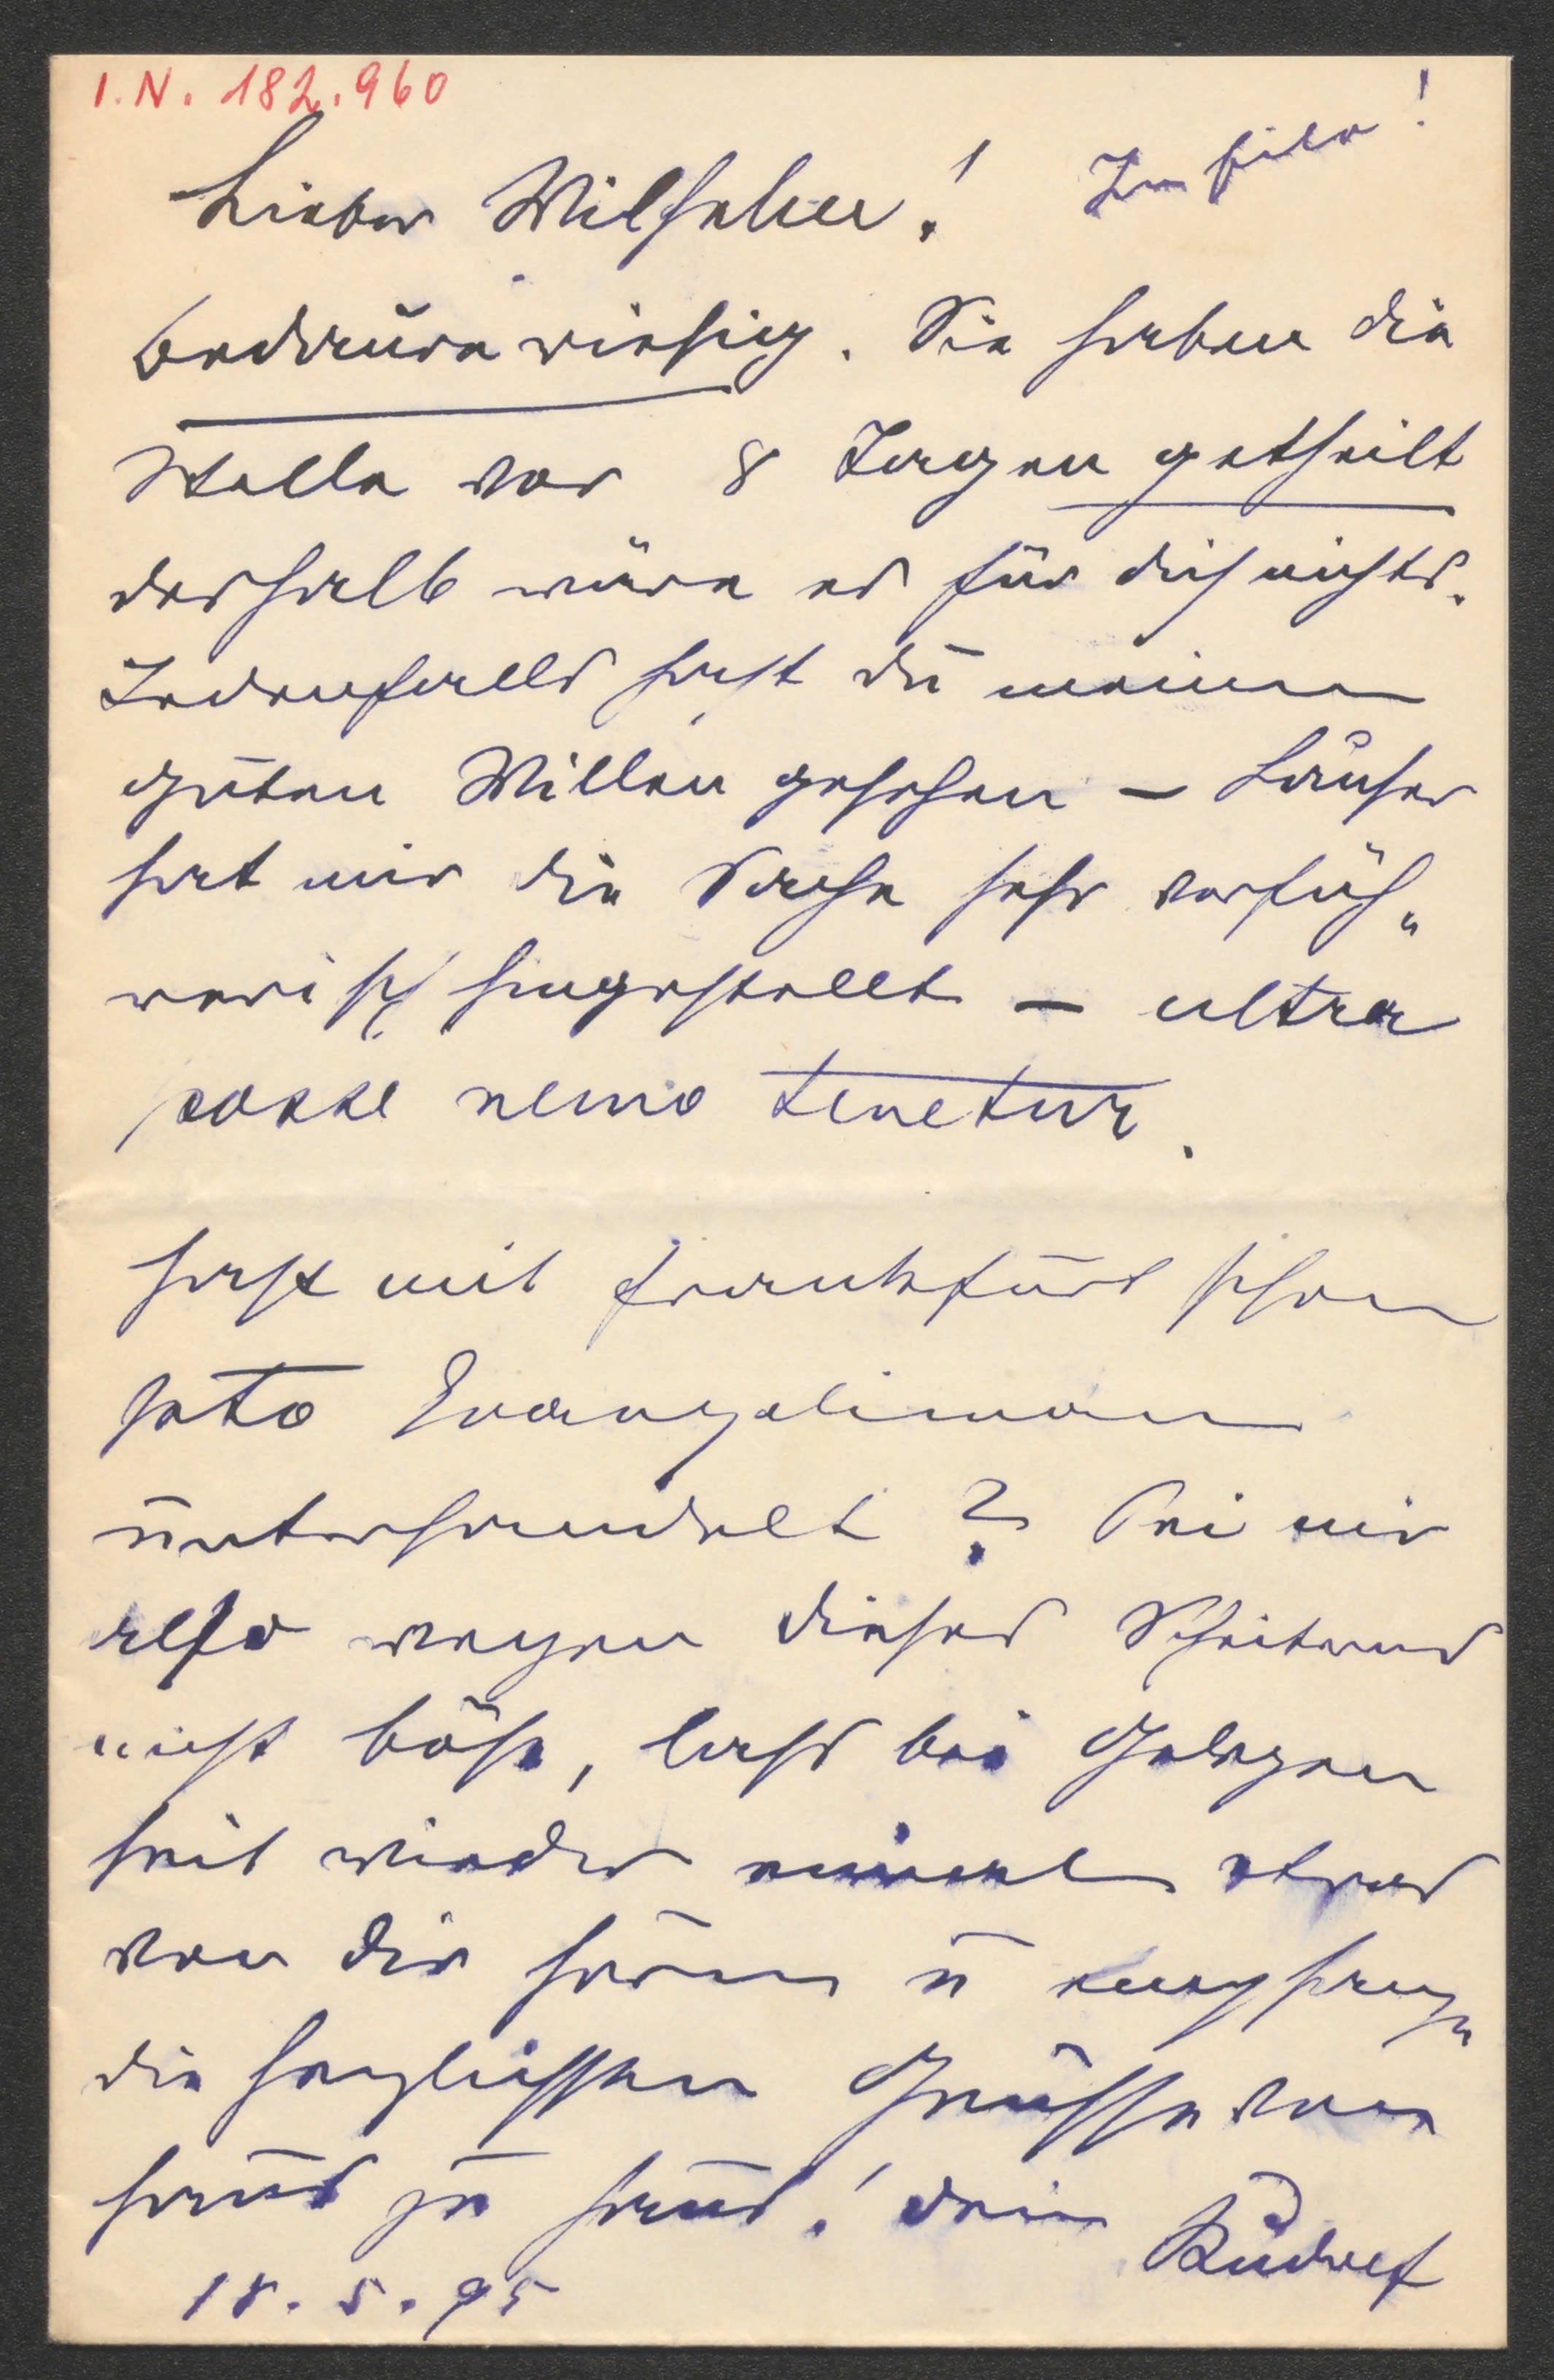 I.N. 182.960
In Eile!
Lieber Wilhelm!
Bedaure riesig. Sie haben die
Stelle vor 8 Tagen getheilt
deshalb wäre es für dich nichts.
Jedenfalls hast du meinen
guten Willen gesehen – Häuser
hat mir die Sache sehr verfüh„
rerisch hingestellt – ultra
posse nemo tenetur.
Hast mit Frankfurt schon
puncto Evangelimann
unterhandelt? Sei mir
also wegen dieses
nicht böse, lass bei Gelegen
heit wieder einmal etwas
von dir hören u empfange
die herzlichsten Grüsse von
Haus zu Haus! Dein Rudolf
18.5.95